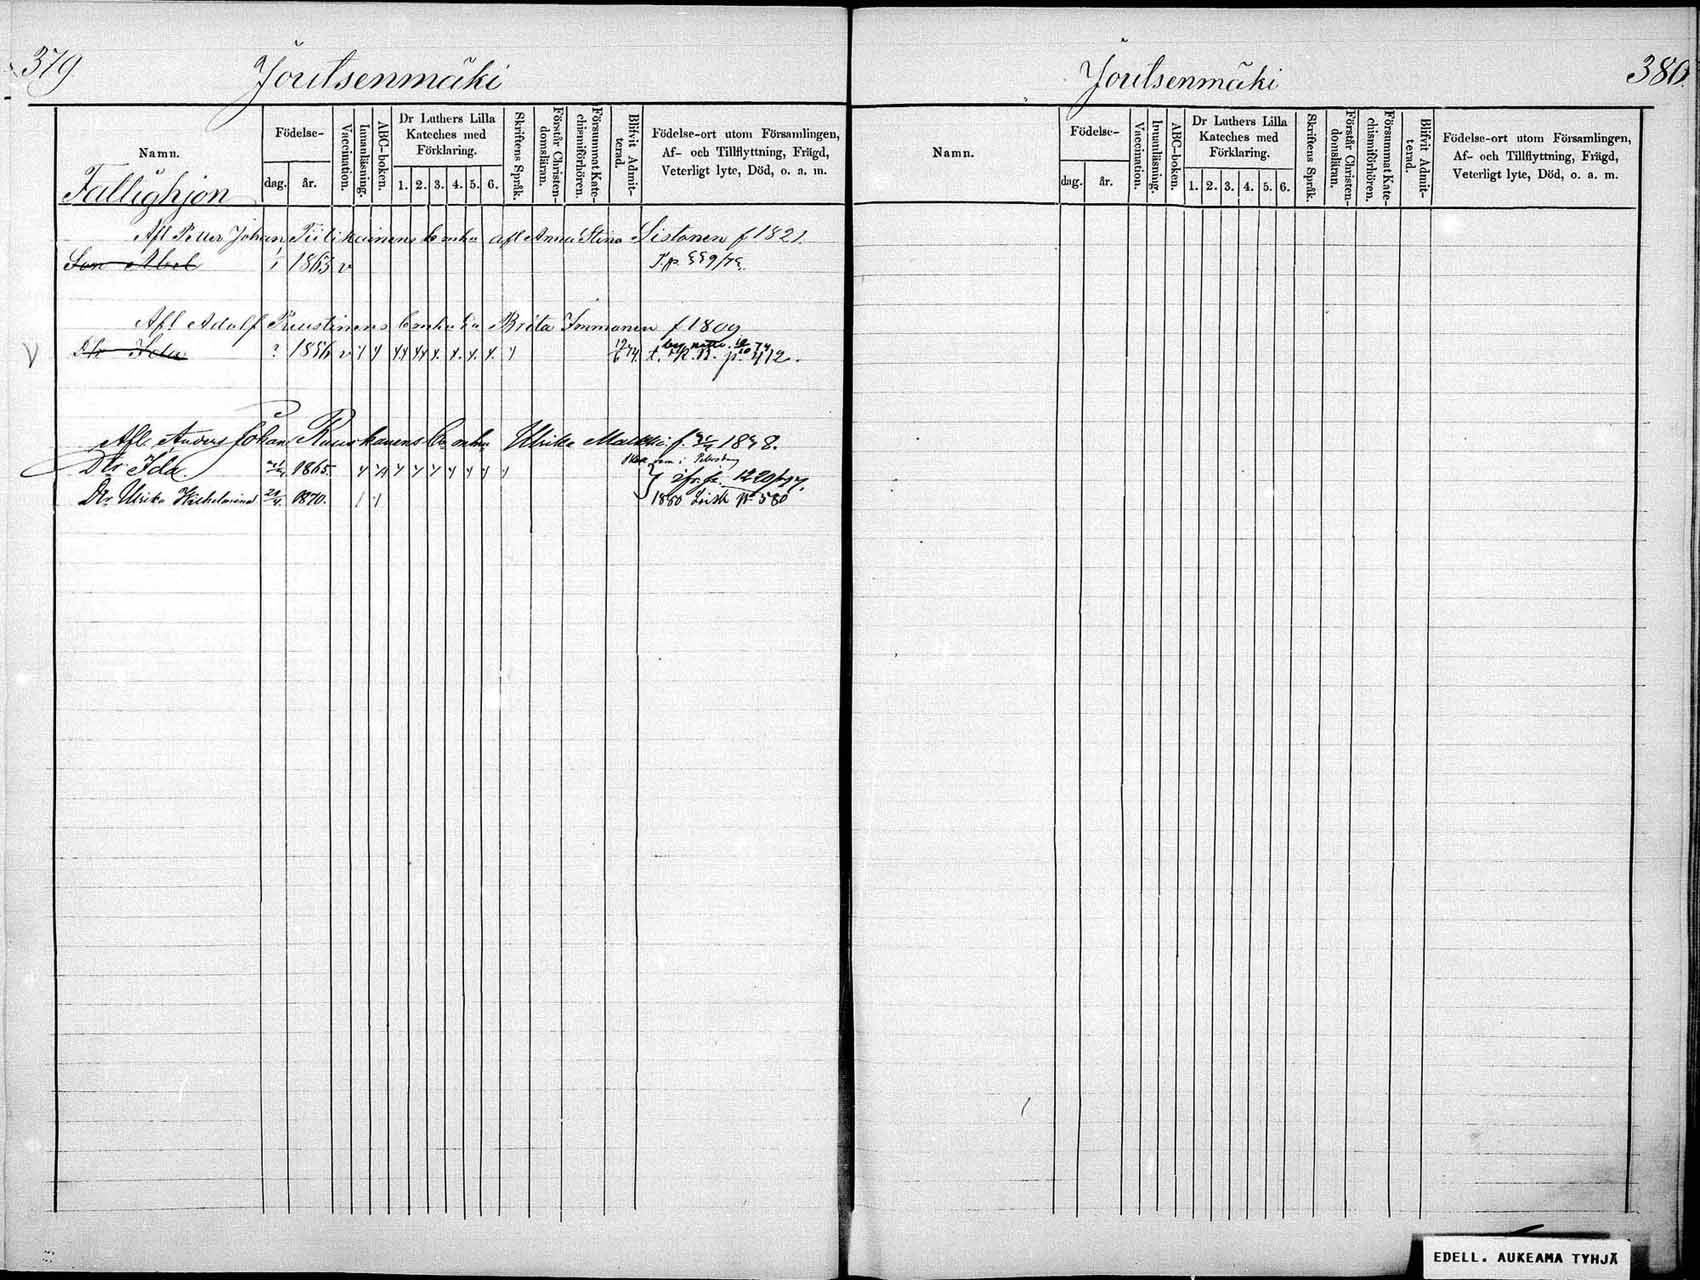 379
Joutsenmäki
Namn.
Födelse-
dag.
år.
Vaccination.
Innanläsning.
ABC-boken.
Dr Luthers Lilla
Kateches med
Förklaring.
1. 2. 3. 4. 5. 6.
Skriftens Språk.
Förstår Christen-
domsläran.
Försummat Kate-
chismiförhören.
Blifvit Admit-
terad.
Födelse-ort utom Församlingen,
Af- och Tillflyttning, Frägd,
Veterligt lyte, Död, o. a. m.
Fattighjon
Afl Petter Johan Tiilikainens Enka afl Anna Stina f 1821.
Son Abel 1863 v
Afl Adolf Enka Brita Immonen f 1809
Dtr Ida ? 1856 v
Afl. Anders Johan Ruuskanens Enka Ulrika f.
Dtr Ida 1865.
Dtr. Ulrika Wilhelmina 1870.
1880 p. 580
Joutsenmäki
380.
Namn.
Födelse-
dag.
år.
Vaccination.
Innanläsning.
ABC-boken.
Dr Luthers Lilla
Kateches med
Förklaring.
1. 2. 3. 4. 5. 6.
Skriftens Språk.
Förstår Christen-
domsläran.
Försummat Kate-
chismiförhören.
Blifvit Admit-
terad.
Födelse-ort utom Församlingen,
Af- och Tillflyttning, Frägd,
Veterligt lyte, Död, o. a. m.
EDELL. AUKEAMA TYHJÄ